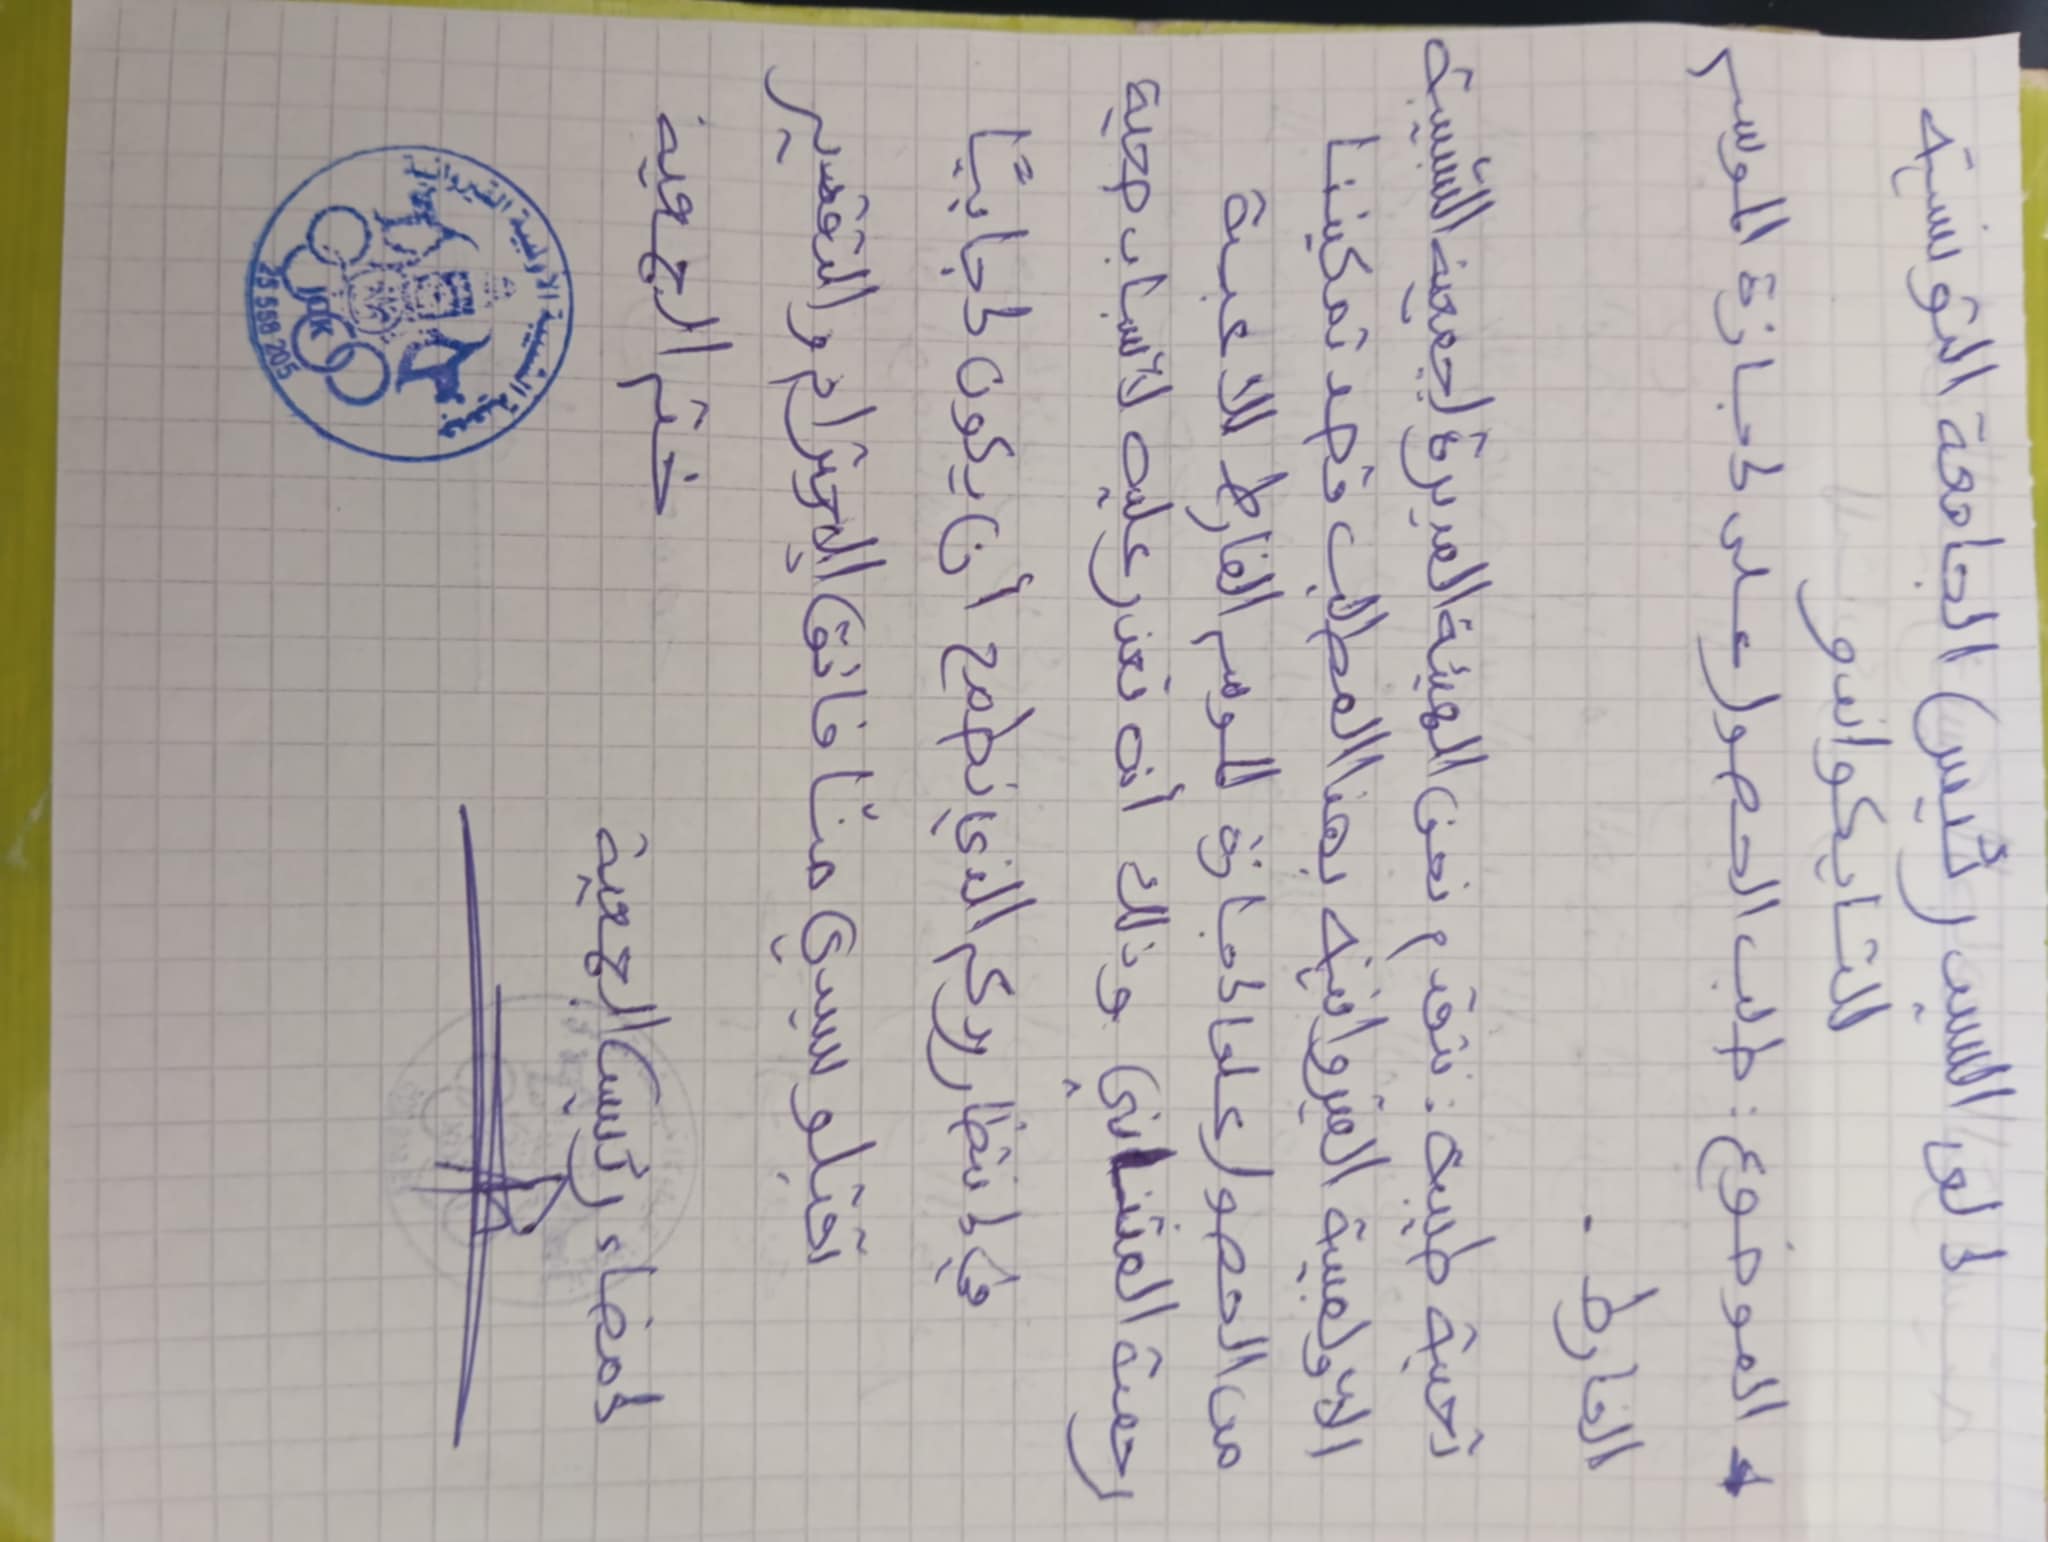 إلى السيد رئيس الجامعة التونسية
للتايكواندو
الموضوع: طلب الحصول على إجازة للموسم
الفارط.
تحية طيبة: نتقدم نحن الهيئة المديرة لجمعية الشبيبة
الأولمبية القيروانية بهذا المطلب قصد تمكيننا
من الحصول على إجازة للموسم الفارط للاعبة
رحمة وذلك أنه تعذر عليه لأسباب صحية
في إنتظار ردكم الذي نطمح أن يكون إجابيًا
تقبلو سيدي منّا فائق الإحترام و التقدير
ختم الجمعية
إمضاء رئيس الجمعية
جمعية الشبيبة الأولمبية القيروانية
JOK
25 558 205